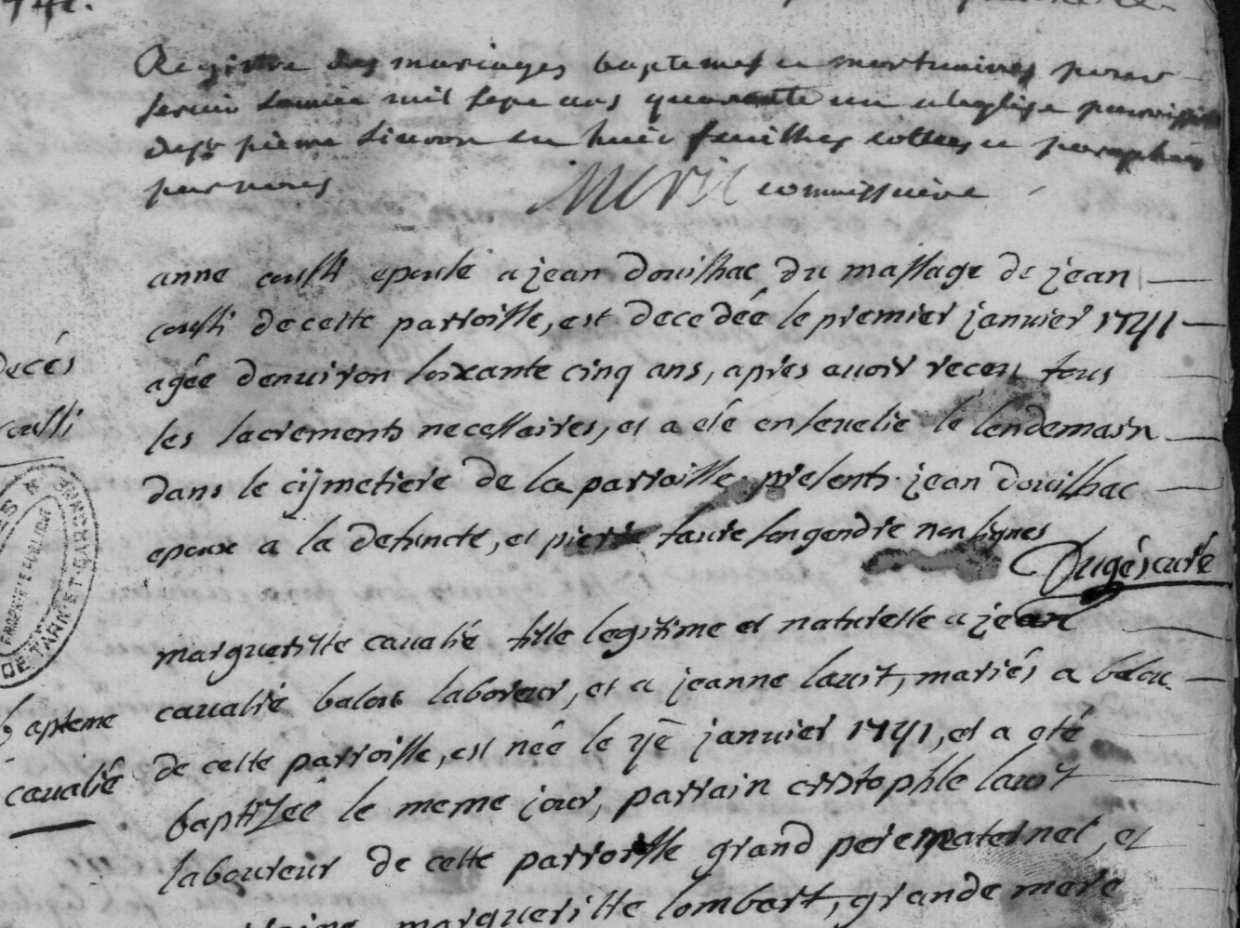 Registre des mariages baptemes et mortuaires pour
servir lannée mil sept cens quarante un a leglise parroissi
de st pierre livron en huit feuilles cottées et paraphées
par nous commissaire
anne cousti epouse a jean douilhac du massage de jean
cousti de cette parroisse, est decedée le premier janvier 1741
agée denviron soixante cinq ans, apres avoir receu tous
les sacrements necessaires, et a eté ensevelie le lendemain
dans le cijmetiere de la parroisse presents jean douilhac
epoux a la defuncte, et pierre faure son gendre non signes
Dugés curé
decés
cousti
margueritte cavalié fille legitime et naturelle a jean
cavalié laboreur, et a jeanne lauit, mariés a
de cette parroisse, est née le janvier 1741, et a eté
baptizée le meme jour, parrain cristophle lauit
laboureur de cette parroisse grand pere maternel, et
margueritte lombart, grande mere
bapteme
cavalié
PROPRIETE PUBLIQUE
DE TARN-ET-GARONNE